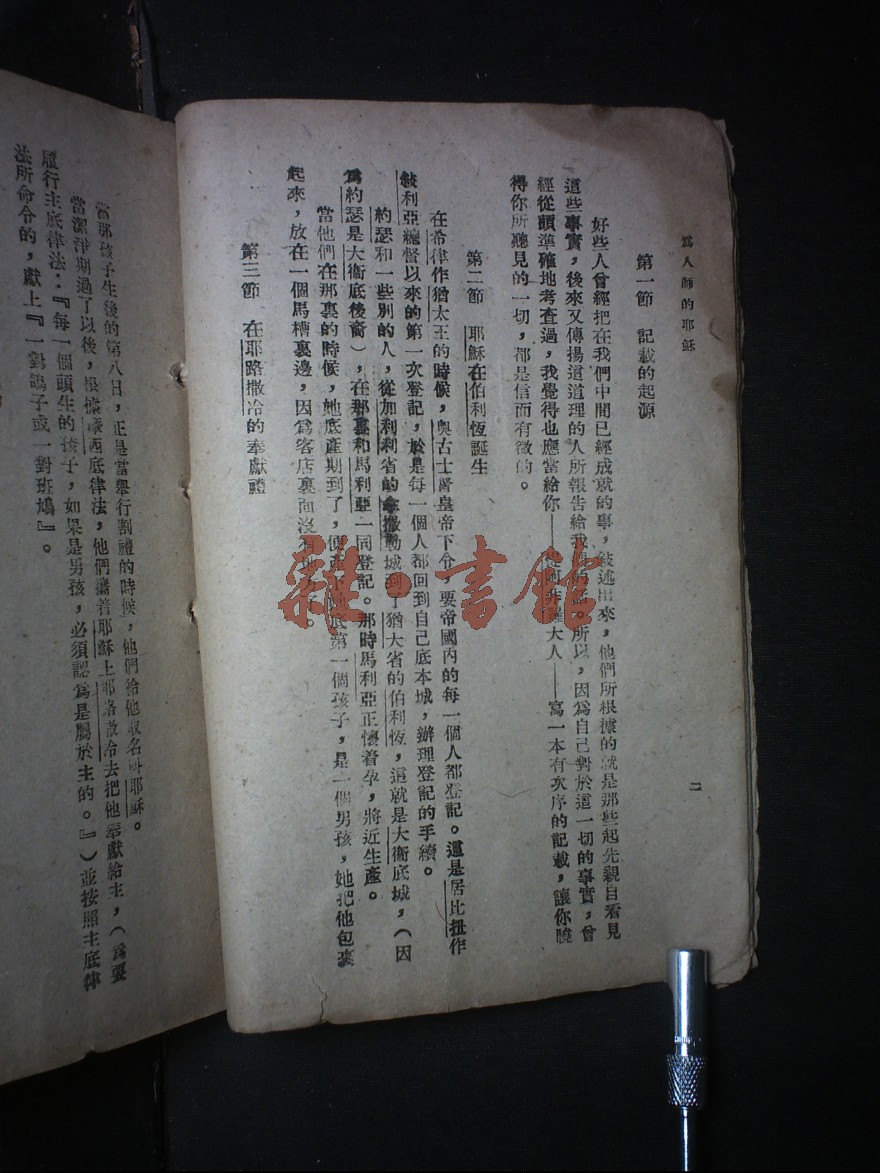 為人師的耶穌
二
第一節　記載的起源
好些人曾經把在我們中間已經成就的事，敍述出來，他們所根據的就是那些起先親自看見
這些事實，後來又傳揚這道理的人所報告給我們的話。所以，因為自己對於這一切的事實，曾
經從頭準確地考查過，我覺得也應當給你——大人——寫一本有次序的記載，讓你曉
得你所聽見的一切，都是信而有徵的。
第二節　耶穌在伯利恆誕生
在希律作猶太王的時候，奧古士督皇帝下令，要帝國內的每一個人都登記。這是居比扭作
敍利亞總督以來的第一次登記，於是每一個人都回到自己底本城，辦理登記的手續。
約瑟和一些別的人，從加利利省的拿撒勒城到了猶大省的伯利恆，這就是大衞底城，（因
為約瑟是大衞底後裔），在那裏和馬利亞一同登記。那時馬利亞正懷着孕，將近生產。
當他們在那裏的時候，她底產期到了，便產下她底第一個孩子，是一個男孩，她把他包裹
起來，放在一個馬槽裏邊，因為客店裏面沒有地方。
第三節　在耶路撒冷的奉獻禮
當那孩子生後的第八日，正是當舉行割禮的時候，他們給他取名叫耶穌。
當潔淨期過了以後，根據摩西底律法，他們攜着耶穌上耶路撒冷去把他奉獻給主，（為要
履行主底律法：『每一個頭生的孩子，如果是男孩，必須認為是屬於主的。』）並按照主底律
法所命令的，獻上『一對鴿子或一對班鳩』。
雜·書館